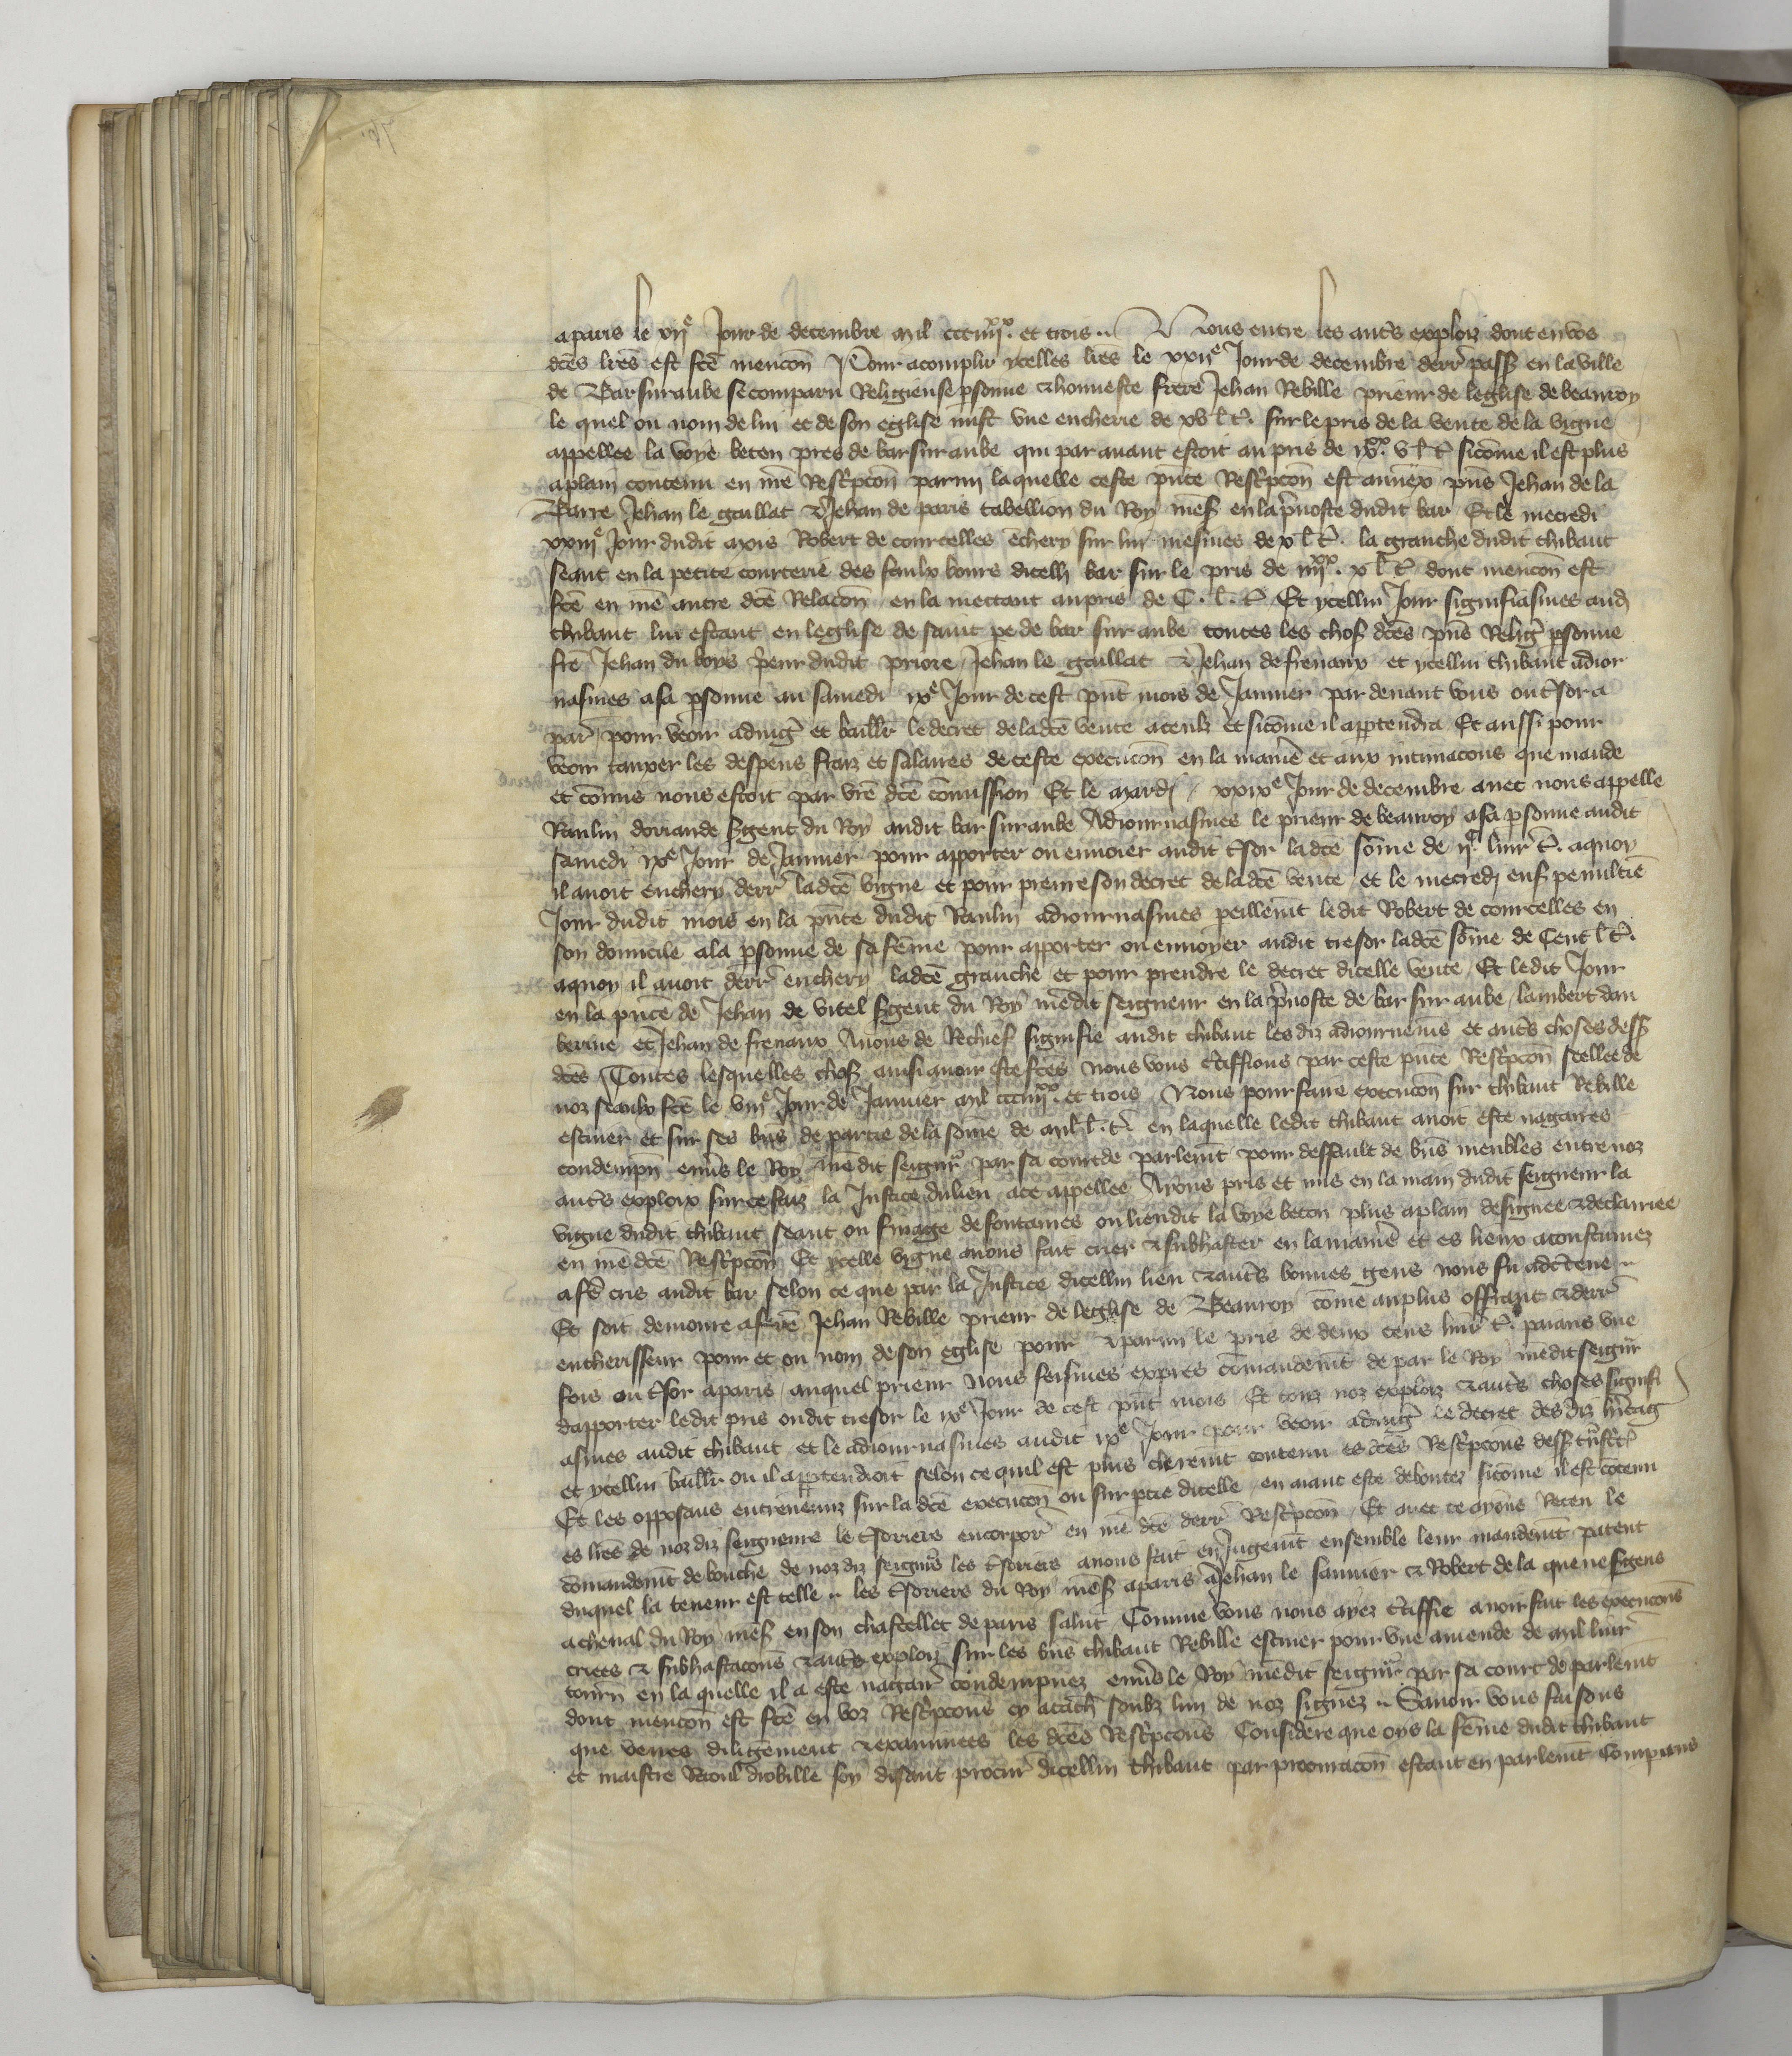 a paris le xiie Jour de decembre mil ccciiiixx. et trois .. Nous entre les autrs exploiz dont en vos
dces lres est fce mencon Pour acomplir ycelles lres le xxiie Jour de decembre derr passe en la ville
de Bar sur aube se comparu Religieuse psonne & honneste frere Jehan Rebille prieur de leglise de beauroy
le quel ou nom de lui et de son eglise mist une encherie de xv l. t. sur le pris de la vente de la vigne
appellee la voye beton pres de bar sur aube qui par avant estoit au pris de ixxx. v l. t. sicome il est plus
a plain contenu en me Rescrpcon parmi la quelle ceste pnte Rescrpcon est annex pns Jehan de la
Barre Jehan le gaillat & Jehan de paris tabellion du Roy nres en la pvoste dudit bar Et le mecredi
xxiiie Jour dudit mois Robert de courcelles enchery sur lui mesmes de x l. t. la granche dudit thibaut
seant en la petite courterie des faulx bours dicelli bar sur le pris de iiiixx. x l. t. dont mencon est
fce en me autre dce Relacon en la mettant au pris de C. l. t. Et ycellui Jour signifiasmes aud
thibaut lui estant en leglise de saint pe de bar sur aube toutes les choses dces pns Religr psonne
fre Jehan du boys prieur dudit priore Jehan le gaillat & Jehan de frenaux et ycellui thibaut adior
nasmes a sa psonne au samedi ixe Jour de cest pnt mois de Janvier par devant vous ou tsor a
par pour veoir adiugr et baillr le decret de la dce vente a ceulz et sicome il appartendra Et aussi pour
veoir tauxer les despens fraiz et salaires de ceste execucion en la manie et aux intimacons que mande
et comis nous estoit par vre dce comission Et le mardi xxixe Jour de decembre avec nous appelle
Raulin doriande Sgent du Roy audit bar sur aube Adiournasmes le prieur de beauroy a sa psonne audit
samedi ixe Jour de Janvier pour apporter ou envoier audit tsor la dce some de iic livr t. a quoy
il avoit enchery derr ladce vigne et pour prenre son decret de la dce vente et le mecredi ens penultie
Jour dudit mois en la pnce dudit Raulin adiournasmes peillemt ledit Robert de courcelles en
son domicile a la psonne de sa feme pour apporter ou envoyer audit tresor ladce some de Cent l. t.
a quoy il avoit derr enchery ladce granche et pour prendre le decret dicelle vente Et ledit Jour
en la pnce de Jehan de vitel Sgent du Roy nredit seigneur en la pvoste de bar sur aube lambert dau
berive et Jehan de frenaux Avons de Rechief signifie audit thibaut les diz adiournems et autrs choses dess
dces Toutes lesquelles choses ainsi avoir este fces nous vous ctiffions par ceste pnte Rescrpcon scellee de
noz seaulx fce le viiie Jour de Janvier mil ccciiiixx. et trois Nous pour faire execucon sur thibaut Rebille
escuier et sur ses bns de partie de la some de mil l. t. en laquelle ledit thibaut avoit este nagaires
condempn envrs le Roy nredit seignr par sa court de parlemt pour deffault de bns meubles entre noz
autrs exploix sur ce faiz la Justice du lieu a ce appellee Avons pris et mis en la main dudit seigneur la
vigne dudit thibaut seant ou finage de fontaines ou lieudit la voye beton plus a plain designee & declairee
en me dce Rescrpcon Et ycelle vigne avons fait crier & subhaster en la manie et es lieux acoustumez
a fe cris audit bar selon ce que par la Justice dicellui lieu & autrs bonnes gens nous fu adctene ..
Et soit demoure a frere Jehan Rebille prieur de leglise de Beauroy come au plus offrant & derr
encherisseur pour et ou nom de son eglise pour & parmi le pris de deux cens livr t. paians une
fois au tsor a paris auquel prieur nous feismes expres comandemt de par le Roy nredit seignr
dapporter ledit pris oudit tresor le ixe Jour de cest pnt mois Et touz noz exploiz & autrs choses signifi
asmes audit thibaut et le adiournasmes audit ixe Jour pour veoir adiugr le decret des diz hritag
et ycellui baillr ou il appartendroit selon ce quil est plus cleremt contenu es dces Rescrpcons dess
Et les opposans entrevenuz sur la dce execucon ou sur ptie dicelle en aiant este deboutez sicome il est cotenu
es lres de noz diz seigneurs les tsoriers encorpor en me dce derr Rescrpcon Et avec ce ayons Receu le
comandemt de bouche de noz diz seignrs les tsoriers avons fait en Jugemt ensemble leur mandemt patent
duquel la teneur est telle .. les tsoriers du Roy nres a paris A Jehan le saunier & Robert de la quenesgens
a cheval du Roy nres en son chastellet de paris salut Comme vous nous ayez ctiffie avoir fait les execucons
criees & subhastacons & autrs exploiz sur les bns thibaut Rebille escuier pour une amende de mil livr
tourn en la quelle il a este nagair condempnez envrs le Roy nredit seignr par sa court de parlemt
dont mencon est fce en voz Rescrpcons cy atach soubz lun de noz signez .. Savoir vous faisons
que veues diligemment & examinees les dces Rescrpcons Considere que oys la feme dudit thibaut
et maistre Raoul drobille soy disant procur dicellui thibaut par procuracon estant en parlemt Comparans